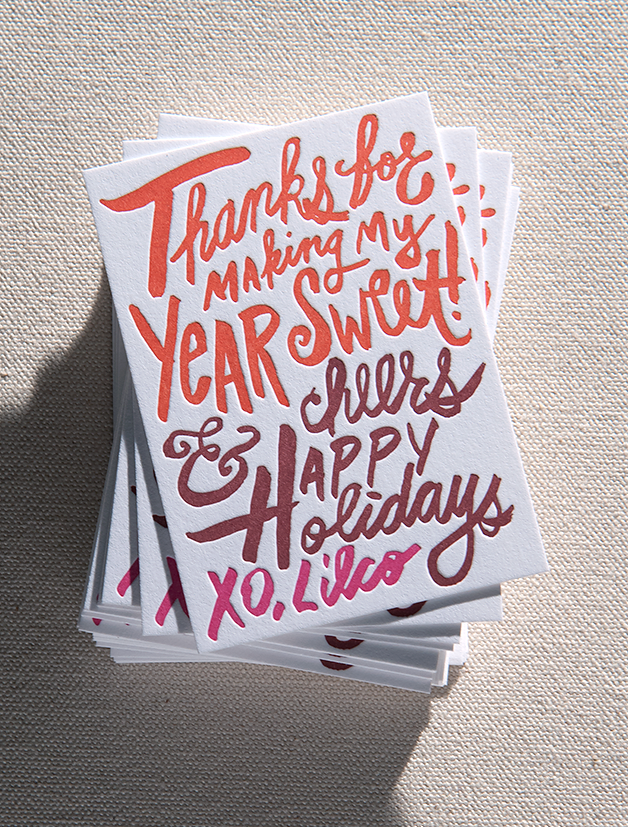 Thanks for
MAking My
YeAR Sweet!
cheers
& HAPPY
Holidays
XO, Lilco